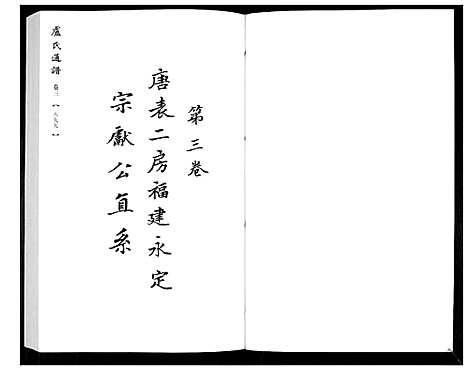 第三卷
唐表二房福建永定
宗獻公直系
盧氏通譜 卷三 【一八九九】